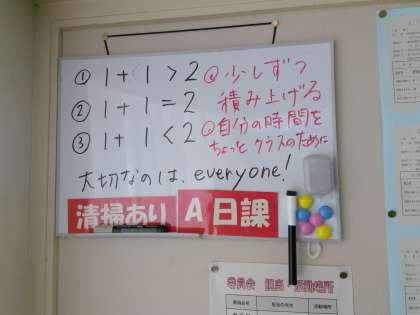 ① 1 + 1 > 2
② 1 + 1 = 2
③ 1 + 1 < 2
◎少しずつ
積み上げる
◎自分の時間を
ちょっとクラスのために
大切なのは、everyone!
清掃あり
A日課
委員会 担当・活動場所